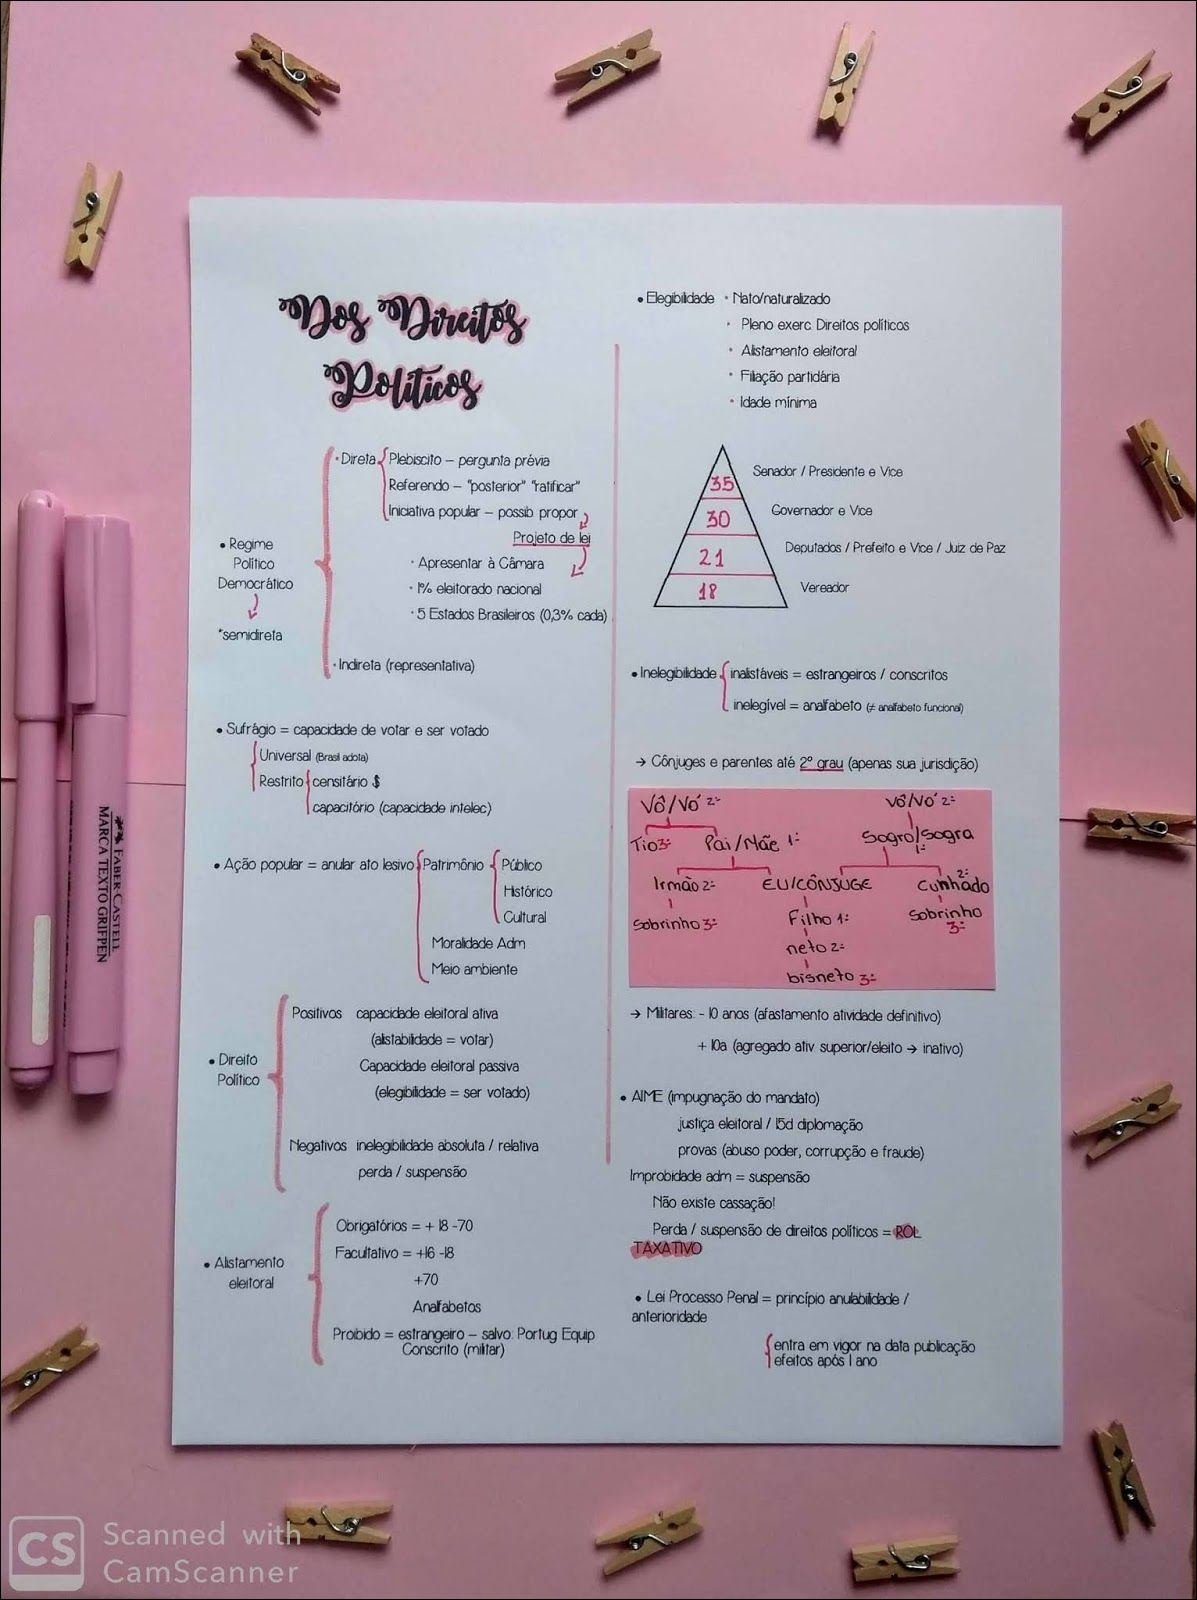 Dos Direitos
Políticos
• Regime
Político
Democrático
*semidireta
• Direta
Plebiscito – pergunta prévia
Referendo – "posterior" "ratificar"
Iniciativa popular – possib propor
Projeto de lei
• Apresentar à Câmara
• 1% eleitorado nacional
• 5 Estados Brasileiros (0,3% cada)
• Indireta (representativa)
• Sufrágio = capacidade de votar e ser votado
Universal (Brasil adota)
Restrito censitário $
capacitório (capacidade intelec)
• Ação popular = anular ato lesivo Patrimônio Público
Histórico
Cultural
Moralidade Adm
Meio ambiente
• Direito
Político
Positivos capacidade eleitoral ativa
(alistabilidade = votar)
Capacidade eleitoral passiva
(elegibilidade = ser votado)
Negativos inelegibilidade absoluta / relativa
perda / suspensão
• Alistamento
eleitoral
Obrigatórios = + 18 -70
Facultativo = +16 -18
+70
Analfabetos
Proibido = estrangeiro – salvo: Portug Equip
Conscrito (militar)
• Elegibilidade • Nato/naturalizado
• Pleno exerc Direitos políticos
• Alistamento eleitoral
• Filiação partidária
• Idade mínima
35 Senador / Presidente e Vice
30 Governador e Vice
21 Deputados / Prefeito e Vice / Juiz de Paz
18 Vereador
• Inelegibilidade inalistáveis = estrangeiros / conscritos
inelegível = analfabeto (≠ analfabeto funcional)
→ Cônjuges e parentes até 2º grau (apenas sua jurisdição)
Vô/Vó 2º Vô/Vó 2º
Tio 3º Pai/Mãe 1º Sogro/Sogra 1º
Irmão 2º EU/CÔNJUGE Cunhado 2º
Sobrinho 3º Filho 1º Sobrinho 3º
neto 2º
bisneto 3º
→ Militares: - 10 anos (afastamento atividade definitivo)
+ 10a (agregado ativ superior/eleito → inativo)
• AIME (impugnação do mandato)
justiça eleitoral / 15d diplomação
provas (abuso poder, corrupção e fraude)
Improbidade adm = suspensão
Não existe cassação!
Perda / suspensão de direitos políticos = ROL
TAXATIVO
• Lei Processo Penal = princípio anulabilidade /
anterioridade
entra em vigor na data publicação
efeitos após 1 ano
FABER-CASTELL
MARCA TEXTO GRIFPEN
CS Scanned with
CamScanner